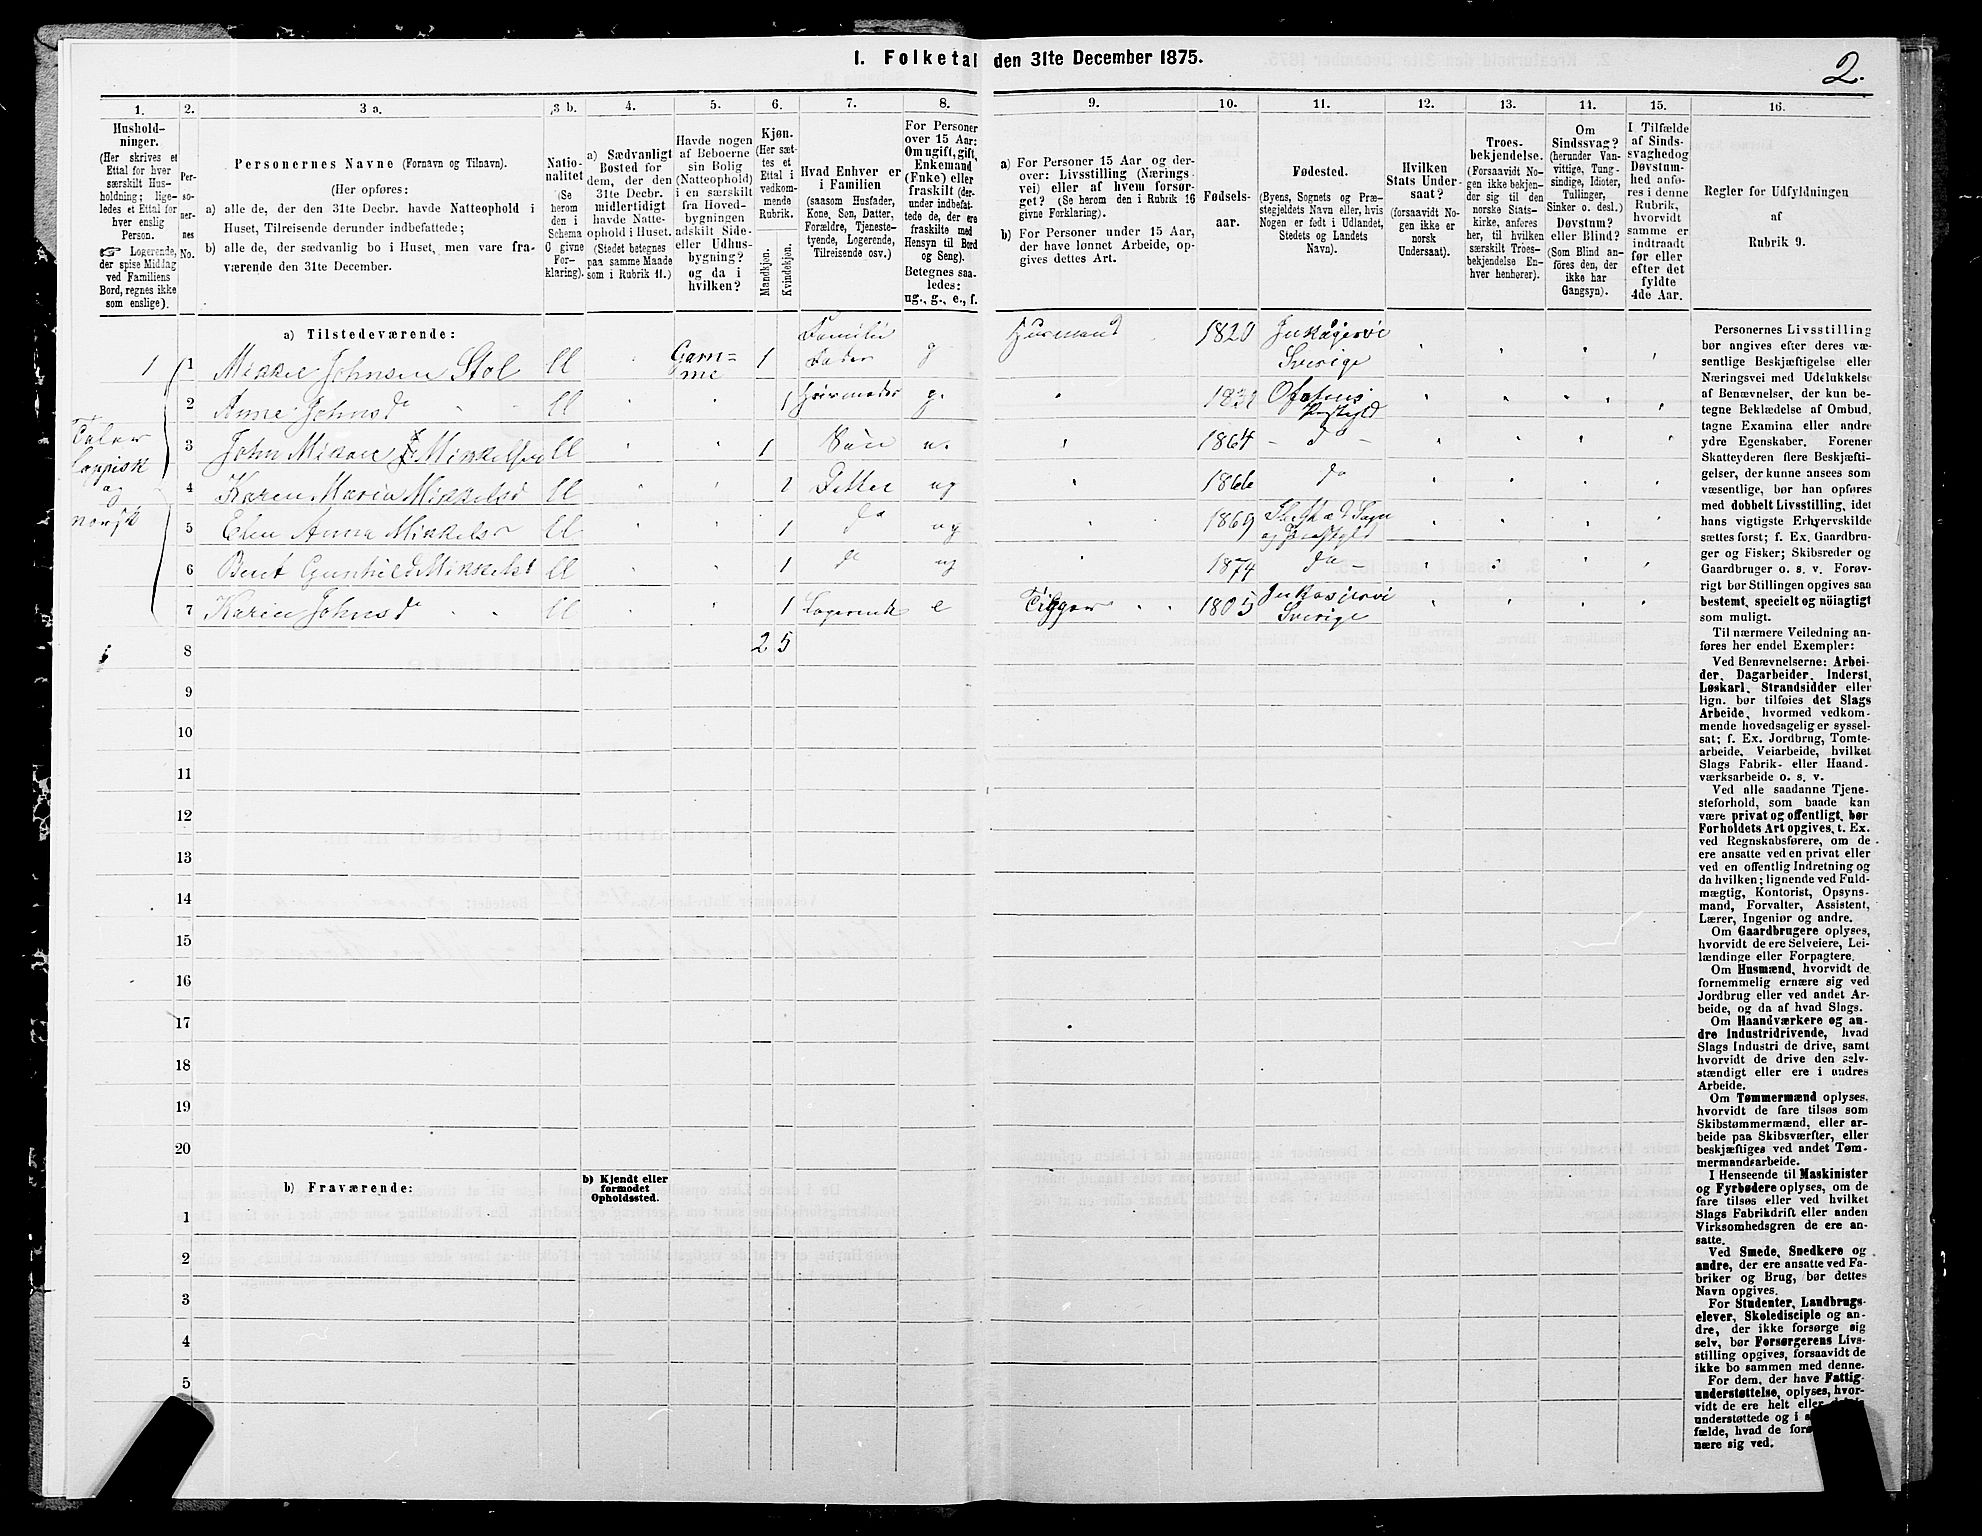 1. Folketal den 31te December 1875.
2.
1.
Hushold-
ninger.
(Her skrives et
Ettal for hver
særskilt Hus-
holdning; lige-
ledes et Ettal for
hver enslig
Person.
☞ Logerende,
der spise Middag
ved Familiens
Bord, regnes ikke
som enslige).
2.
Per-
so-
ner-
nes
No.
3 a.
Personernes Navne (Fornavn og Tilnavn).
(Her opføres:
a) alle de, der den 31te Decbr. havde Natteophold i
Huset, Tilreisende derunder indbefattede;
b) alle de, der sædvanlig bo i Huset, men vare fra-
værende den 31te December.
3 b.
Natio-
nalitet
(Se
herom
den i
Schema
O givne
For-
klaring).
4.
a) Sædvanligt
Bosted for
dem, der den
31te Decbr.
midlertidigt
havde Natte-
ophold i Huset.
(Stedet betegnes
paa samme Maade
som i Rubrik 11.)
5.
Havde nogen
af Beboerne
sin Bolig
(Natteophold)
i en særskilt
fra Hoved-
bygningen
adskilt Side-
eller Udhus-
bygning?
og da i
hvilken?
6.
Kjøn.
(Her sæt-
tes et
Ettal i
vedkom-
mende
Rubrik.
Mandkjøn.
Kvindekjøn.
7.
Hvad Enhver er
i Familien
(saasom Husfader,
Kone, Søn, Datter,
Forældre, Tjeneste-
tyende, Logerende,
Tilreisende osv.)
8.
For Personer
over 15 Aar:
Om ugift, gift,
Enkemand
(Enke) eller
fraskilt (der-
under indbefat-
tede de, der ere
fraskilte med
Hensyn til Bord
og Seng).
Betegnes saa-
ledes:
ug., g., e., f.
9.
a) For Personer 15 Aar og der-
over: Livsstilling (Nærings-
vei) eller af hvem forsør-
get? (Se herom den i Rubrik 16
givne Forklaring).
b) For Personer under 15 Aar,
der have lønnet Arbeide, op-
gives dettes Art.
10.
Fødsels-
aar.
11.
Fødested.
(Byens, Sognets og Præ-
stegjeldets Navn eller, hvis
Nogen er født i Udlandet,
Stedets og Landets
Navn).
12.
Hvilken
Stats Under-
saat?
(forsaavidt No-
gen ikke er
norsk
Undersaat).
13.
Troes-
bekjendelse.
(Forsaavidt No-
gen ikke bekjen-
der sig til den
norske Stats-
kirke, anføres
her, til hvilken
særskilt Troes-
bekjendelse En-
hver henhører).
11.
Om
Sindssvag?
(herunder Van-
vittige, Tung-
sindige, Idioter,
Tullinger,
Sinker o. desl.)
Døvstum?
eller Blind?
(Som Blind an-
føres den, der
ikke har
Gangsyn).
15.
I Tilfælde
af Sinds-
svaghed og
Døvstum-
hed anfø-
res i denne
Rubrik,
hvorvidt
samme er
indtraadt
før eller
efter det
fyldte
4de Aar.
16.
Regler for Udfyldningen
af
Rubrik 9.
a) Tilstedeværende:
1 1 Mikkel Johnsen Stol ll Gam=me 1 Familiefader g Husmand 1820 Jukasjervi Sverige
2 Anne Johnsd ll 1 Husmoder g. 1832 Ofotens Præstgjeld
Taler lappisk og norsk
3 John Mikkel Mikkelsen ll 1 Søn u. 1864 do
4 Karen Maria Mikkelsd ll 1 Datter ug 1866 do
5 Elen Anna Mikkelsd ll 1 do ug 1869
6 Berit Gunhild Mikkelsd ll 1 do ug 1874 do
7 Karin Johnsd ll 1 Logerende e Tigger 1805 Jukasjervi Sverige
8 2 5
9
10
11
12
13
14
15
16
17
18
19
20
b) Fraværende:
b) Kjendt eller
formodet
Opholdssted.
1
2
3
4
5
Personernes Livsstilling
bør angives efter deres væ-
sentlige Beskjæftigelse eller
Næringsvei med Udelukkelse
af Benævnelser, der kun be-
tegne Beklædelse af Ombud,
tagne Examina eller andre
ydre Egenskaber. Forener
Skatteyderen flere Beskjæfti-
gelser, der kunne ansees som
væsentlige, bør han opføres
med dobbelt Livsstilling, idet
hans vigtigste Erhvervskilde
sættes først; f. Ex. Gaardbru-
ger og Fisker; Skibsreder og
Gaardbruger o. s. v. Forøv-
rigt bør Stillingen opgives saa
bestemt, specielt og nöiagtigt
som muligt.
Til nærmere Veiledning an-
føres her endel Exempler:
Ved Benævnelserne: Arbei-
der, Dagarbeider, Inderst,
Løskarl, Strandsidder eller
lign. bør tilføies det Slags
Arbeide, hvormed vedkom-
mende hovedsagelig er syssel-
sat; f. Ex. Jordbrug, Tomte-
arbeide, Veiarbeide, hvilket
Slags Fabrik- eller Haand-
værksarbeide o. s. v.
Ved alle saadanne Tjene-
steforhold, som baade kan
være privat og offentligt, bør
Forholdets Art opgives, t. Ex.
ved Regnskabsførere, om de
ere ansatte ved en privat eller
ved en offentlig Indretning og
da hvilken; lignende ved Fuld-
mægtig, Kontorist, Opsyns-
mand, Forvalter, Assistent,
Lærer, Ingeniør og andre.
Om Gaardbrugere oplyses,
hvorvidt de ere Selveiere, Lei-
lændinge eller Forpagtere.
Om Husmænd, hvorvidt de
fornemmelig ernære sig ved
Jordbrug eller ved andet Ar-
beide, og da af hvad Slags.
Om Haandværkere og an-
dre Industridrivende, hvad
Slags Industri de drive, samt
hvorvidt de drive den selv-
stændigt eller ere i andres
Arbeide.
Om Tømmermænd oplyses,
hvorvidt de fare tilsøs som
Skibstømmermænd, eller ar-
beide paa Skibsværfter, eller
beskjæftiges ved andet Tøm-
mermandsarbeide.
I Henseende til Maskinister
og Fyrbødere oplyses, om de
fare tilsøs eller ved hvilket
Slags Fabrikdrift eller anden
Virksomhedsgren de ere an-
satte.
Ved Smede, Snedkere og
andre, der ere ansatte ved Fa-
briker og Brug, bør dettes
Navn opgives.
For Studenter, Landbrugs-
elever, Skoledisciple og an-
dre, der ikke forsørge sig
selv, bør Forsørgerens Livs-
stilling opgives, forsaavidt de
ikke bo sammen med denne.
For dem, der have Fattig-
understøttelse, oplyses, hvor-
vidt de ere helt eller
understøttede og i
fælde, hvad de
nære sig ved.